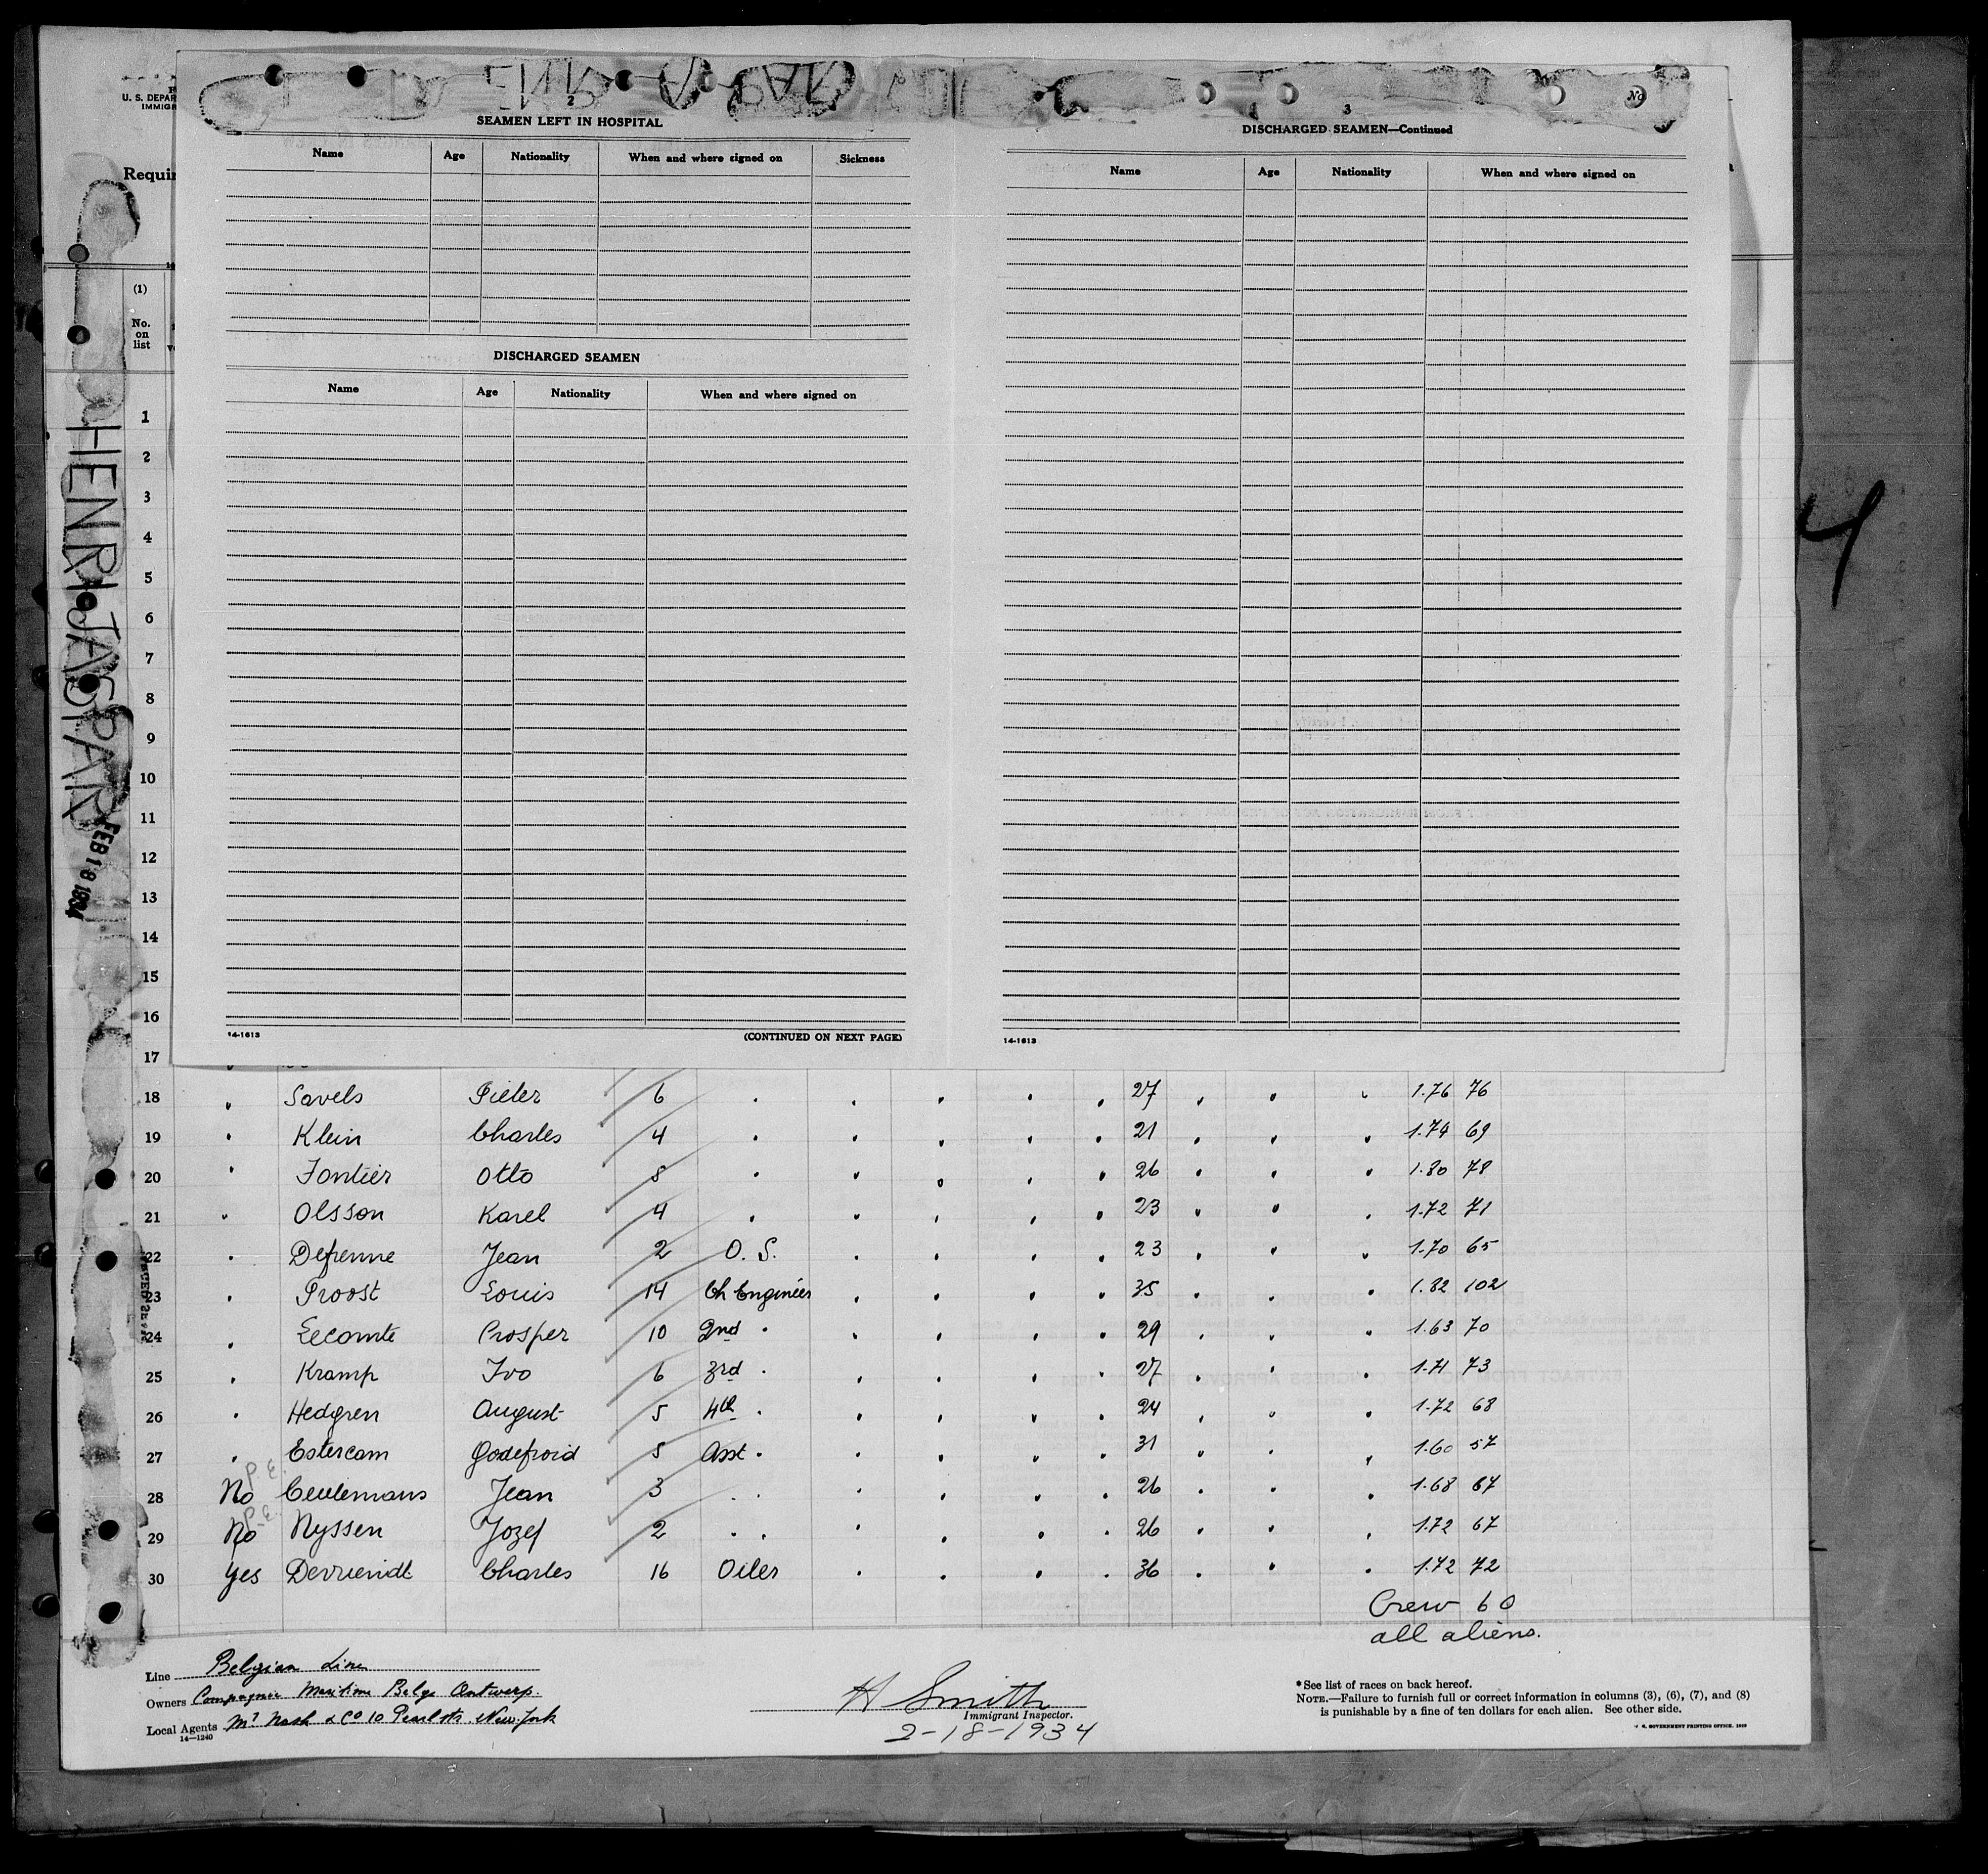 U. S. DEPAR
IMMIGR
Requir
(1)
No.
on
list
HENRI JASPAR
FEB 18 1934
2
SEAMEN LEFT IN HOSPITAL
Name Age Nationality When and where signed on Sickness
DISCHARGED SEAMEN
Name Age Nationality When and where signed on
14-1613 (CONTINUED ON NEXT PAGE)
3
No
DISCHARGED SEAMEN—Continued
Name Age Nationality When and where signed on
14-1613
4
1
2
3
4
5
6
7
8
9
10
11
12
13
14
15
16
17
18 " Savels Pieter 6 " " " " " 27 " " " 1.76 76
19 " Klein Charles 4 " " " " " 21 " " " 1.74 69
20 " Fontier Otto 8 " " " " " 26 " " " 1.80 78
21 " Olsson Karel 4 " " " " " 23 " " " 1.72 71
22 " Defrenne Jean 2 O. S. " " " " 23 " " " 1.70 65
23 " Proost Louis 14 Ch Engineer " " " " 35 " " " 1.82 102
24 " Lecomte Prosper 10 2nd " " " " " 29 " " " 1.63 70
25 " Kramp Ivo 6 3rd " " " " " 27 " " " 1.71 73
26 " Hedgren August 5 4th " " " " " 24 " " " 1.72 68
27 " Estercam Godefroid 5 Asst " " " " " 31 " " " 1.60 57
P. E.
28 No Ceulemans Jean 3 " " " " " " 26 " " " 1.68 67
P. E.
29 No Nyssen Jozef 2 " " " " " " 26 " " " 1.72 67
30 Yes Devriendt Charles 16 Oiler " " " " 36 " " " 1.72 72
Crew 60
all aliens.
Line Belgian Line
Owners Compagnie Maritime Belge Antwerp.
Local Agents Mr Nash & Co 10 Pearl str. New-York
14—1240
H Smith
Immigrant Inspector.
2-18-1934
* See list of races on back hereof.
NOTE.—Failure to furnish full or correct information in columns (3), (6), (7), and (8)
is punishable by a fine of ten dollars for each alien. See other side.
GOVERNMENT PRINTING OFFICE